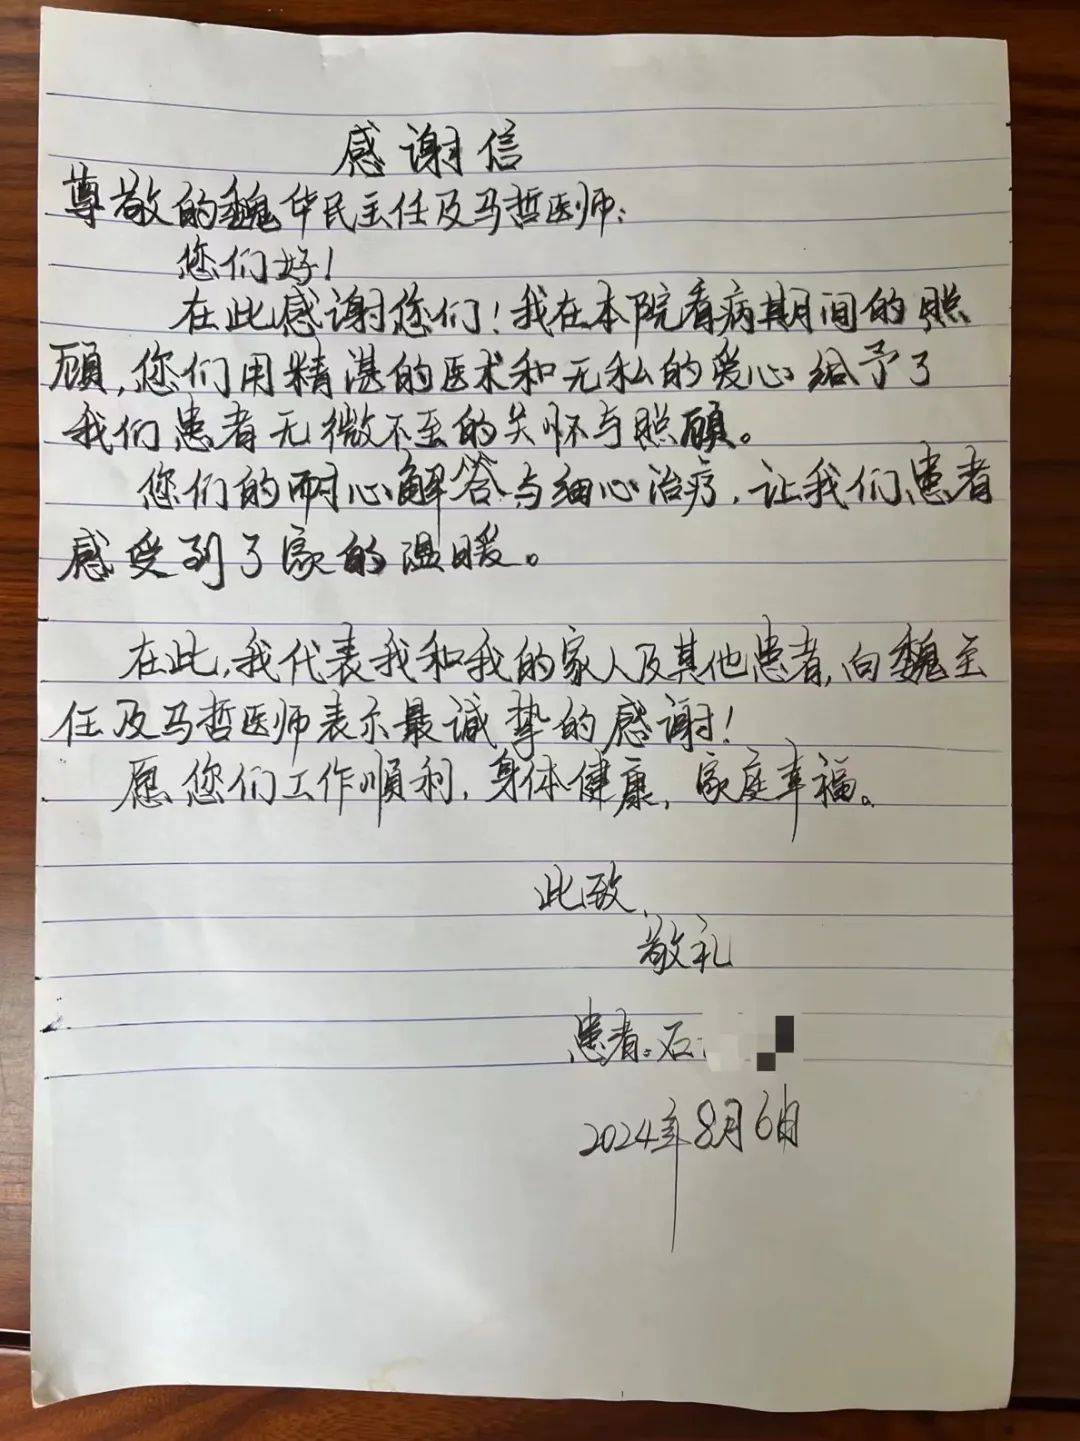 感谢信
尊敬的魏华民主任及马哲医师：
您们好！
在此感谢您们！我在本院看病期间的照
顾，您们用精湛的医术和无私的爱心给予了
我们患者无微不至的关怀与照顾。
您们的耐心解答与细心治疗，让我们患者
感受到了家的温暖。
在此，我代表我和我的家人及其他患者，向魏主
任及马哲医师表示最诚挚的感谢！
愿您们工作顺利，身体健康，家庭幸福。
此致
敬礼
患者：石
2024年8月6日